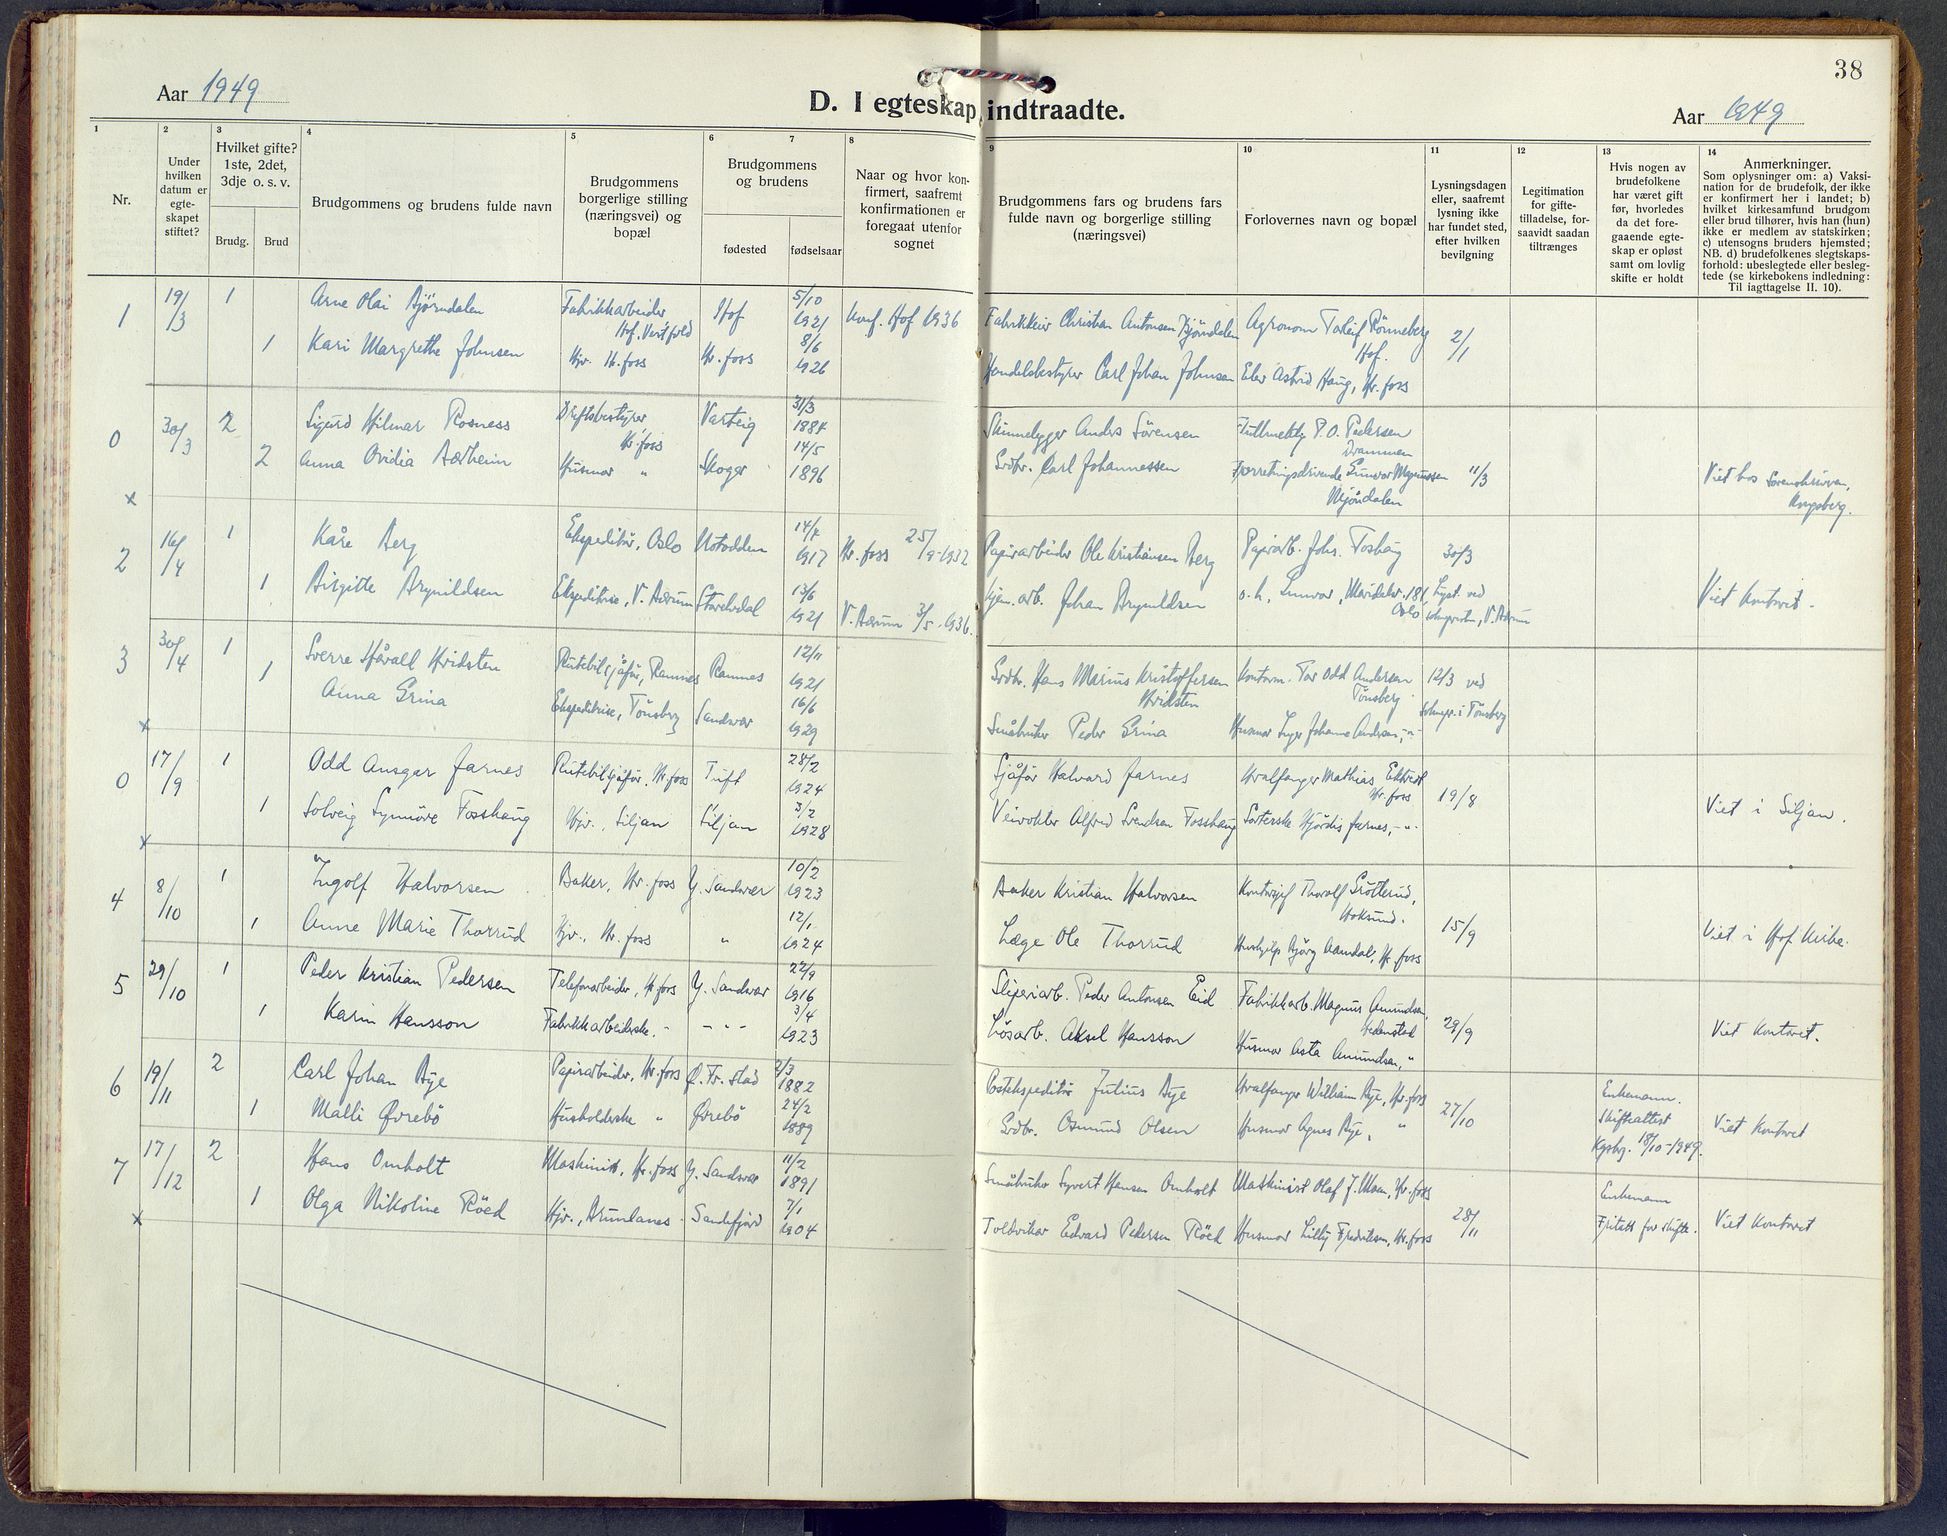 38
Aar 1949
D. I egteskap indtraadte.
Aar 1949
1
2
3
4
5
6
7
8
9
10
11
12
13
14
Nr.
Under hvilken datum er egteskapet stiftet?
Hvilket gifte? 1ste, 2det, 3dje o. s. v.
Brudg.
Brud
Brudgommens og brudens fulde navn
Brudgommens borgerlige stilling (næringsvei) og bopæl
Brudgommens og brudens
fødested
fødselsaar
Naar og hvor konfirmert, saafremt konfirmationen er foregaat utenfor sognet
Brudgommens fars og brudens fars fulde navn og borgerlige stilling (næringsvei)
Forlovernes navn og bopæl
Lysningsdagen eller, saafremt lysning ikke har fundet sted, efter hvilken bevilgning
Legitimation for giftetilladelse, forsaavidt saadan tiltrænges
Hvis nogen av brudefolkene har været gift før, hvorledes da det foregaaende egteskap er opløst samt om lovlig skifte er holdt
Anmerkninger.
Som oplysninger om: a) Vaksination for de brudefolk, der ikke er konfirmert her i landet; b) hvilket kirkesamfund brudgom eller brud tilhører, hvis han (hun) ikke er medlem av statskirken; c) utensogns bruders hjemsted; NB. d) brudefolkenes slegtskapsforhold: ubeslegtede eller beslegtede (se kirkebokens indledning: Til iagttagelse II. 10).
1 19/3 1 Arne Olai Bjørndalen Fabrikkarbeider Hof, Vestfold Hof 5/10 1921 Konf. Hof 1936 Fabrikkeier Christian Antonsen Bjørndalen Agronom Torleif Rønneberg Hof. 2/1
1 Kari Margrethe Johnsen Hjv. Hv.foss Hv.foss 8/6 1926 Handelsbestyrer Carl Johan Johnsen Elev Astrid Haug, Hv.foss
0 30/3 2 Sigurd Hilmar Rosness Driftsbestyrer Hv.foss Varteig 31/3 1884 Skinnelegger Anders Sørensen P. O. Pedersen Drammen 11/3
2 Anna Ovidia Aarheim Husmor " Skoger 14/5 1896 Grdbr. Carl Johannessen Forretningsdrivende Gunvor Magnussen Mjøndalen
Viet hos Sorenskriveren, Kongsberg.
x
2 16/4 1 Kåre Berg Ekspeditør, Oslo Notodden 14/7 1917 Hv.foss 25/9-1932 Papirarbeider Ole Kristiansen Berg Papirarb. Johs. Foshaug 30/3
1 Birgitte Brynildsen Ekspeditrise, V. Bærum 13/6 1921 V. Bærum 3/5-1936. Johan Brynildsen Lyst ved soknepresten, V. Bærum
Viet Kontoret.
3 30/4 1 Sverre Håvall Hvidsten Rutebilsjåfør, Ramnes Ramnes 12/11 1921 Grdbr. Hans Marius Kristoffersen Hvidsten Kontorm. Tor Odd Andersen Tønsberg 12/3 ved sokнepr. i Tønsberg
1 Anna Grina Ekspeditrise, Tønsberg Sandsvær 16/6 1929 Småbruker Peder Grina Husmor Inger Johanne Andersen, -"-
x
0 17/9 1 Odd Ansgar Jarnes Rutebilsjåfør, Hv.foss Tuft 28/2 1924 Sjåfør Halvard Jarnes Hvalfanger Mathias Hv.foss 19/8
1 Solveig Synnøve Fosshaug Hjv., Siljan Siljan 3/2 1928 Veivokter Alfred Svendsen Fosshaug Hjørdis Jarnes, -"-
Viet i Siljan.
x
4 8/10 1 Ingolf Halvorsen Baker, Hv.foss Y. Sandsvær 10/2 1923 Baker Kristian Halvorsen Kontorsjef Thoralf Grøtterud, Hoksund. 15/9
1 Anne Marie Thorrud Hjv., Hv.foss " 12/1 1924 Læge Ole Thorrud Bjørg Aamdal, Hv.foss
Viet i Hof Kirke.
5 29/10 1 Peder Kristian Pedersen Telefonarbeider, Hv.foss Y. Sandsvær 22/9 1916 Sliperiarb. Peder Antonsen Eid Fabrikkarb. Magnus Amundsen, Hedenstad 29/9
1 Karin Hansson Fabrikkarbeiderske -"- 3/4 1923 Løsarb. Aksel Hansson Husmor Asta Amundsen, "
Viet Kontoret.
6 19/11 2 Carl Johan Bye Papirarbeider, Hv.foss Ø. Fr.stad 2/3 1882 Postekspeditør Julius Bye Hvalfanger William Bye, Hv.foss 27/10 Enkemann. Skifteattest Kgsbg. 18/10-1949.
1 Malli Øvrebø Husholderske " Øvrebø 24/2 1889 Grdbr. Osmund Olsen Husmor Agnes Bye, "
Viet Kontoret
7 17/12 2 Hans Omholt Maskinist, Hv.foss Y. Sandsvær 11/2 1891 Småbruker Syvert Hansen Omholt Maskinist Olaf J. Moen, Hv.foss 28/11 Enkemann Fritatt for skifte.
1 Olga Nikoline Røed Hjv., Brunlanes. Sandefjord 7/1 1904 Toldvikar Edvard Pedersen Røed Husmor Lilly Fredriksen, Hv.foss
Viet Kontoret
x